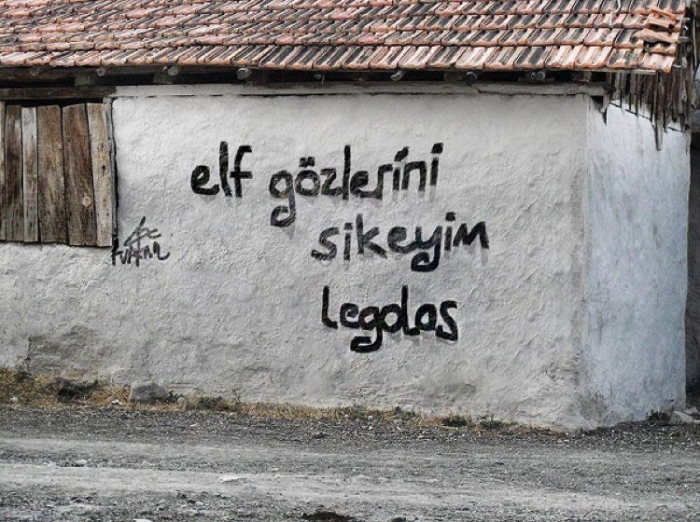 elf gözlerini
sikeyim
legolas